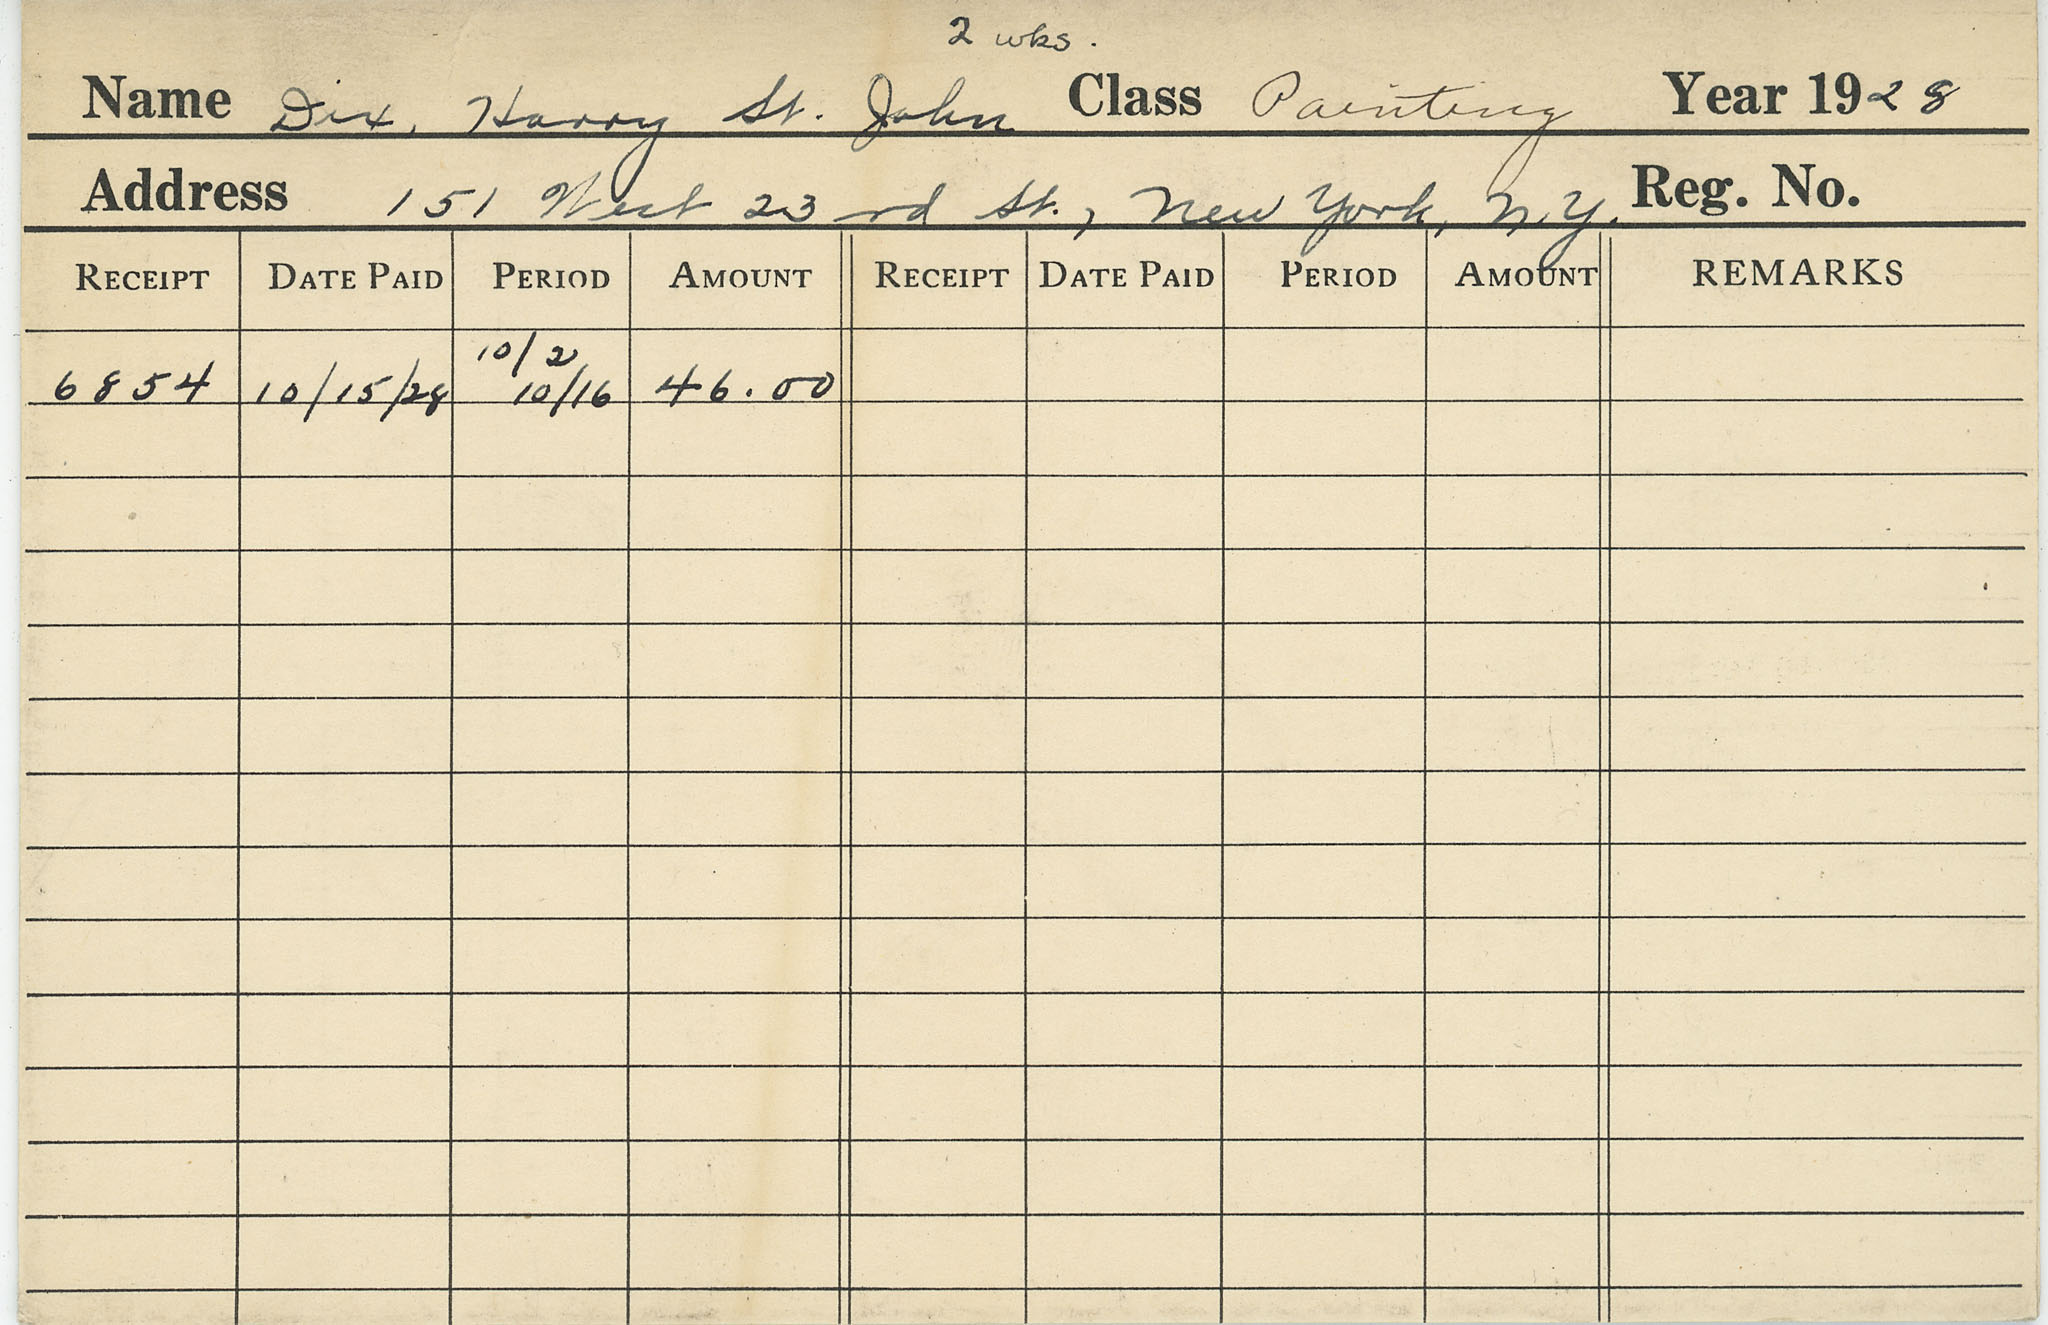 2 wks.
Name Dix, Harry St. John Class Painting Year 1928
Address 151 West 23rd St., New York, N.Y. Reg. No.
RECEIPT DATE PAID PERIOD AMOUNT RECEIPT DATE PAID PERIOD AMOUNT REMARKS
10/2
6854 10/15/28 10/16 46.00